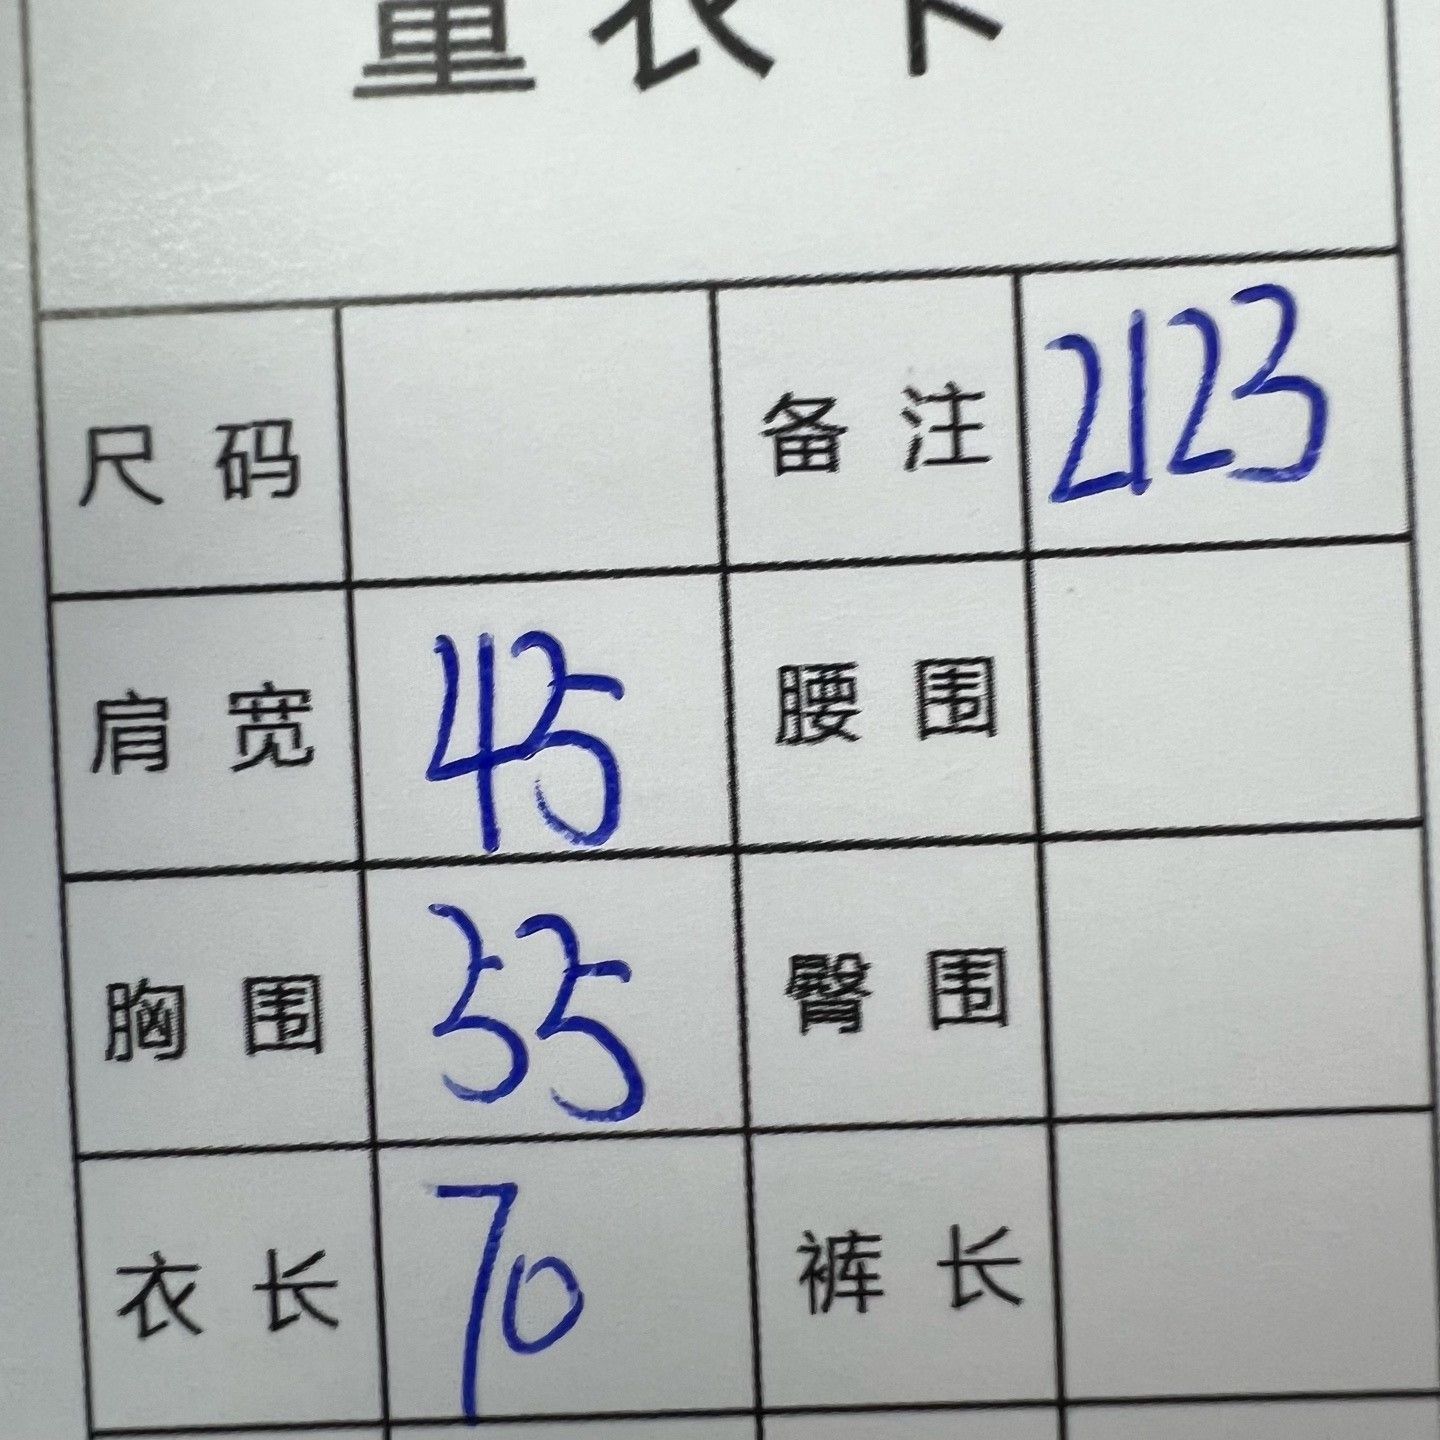 量衣卡
尺码 备注 2123
肩宽 45 腰围
胸围 55 臀围
衣长 70 裤长